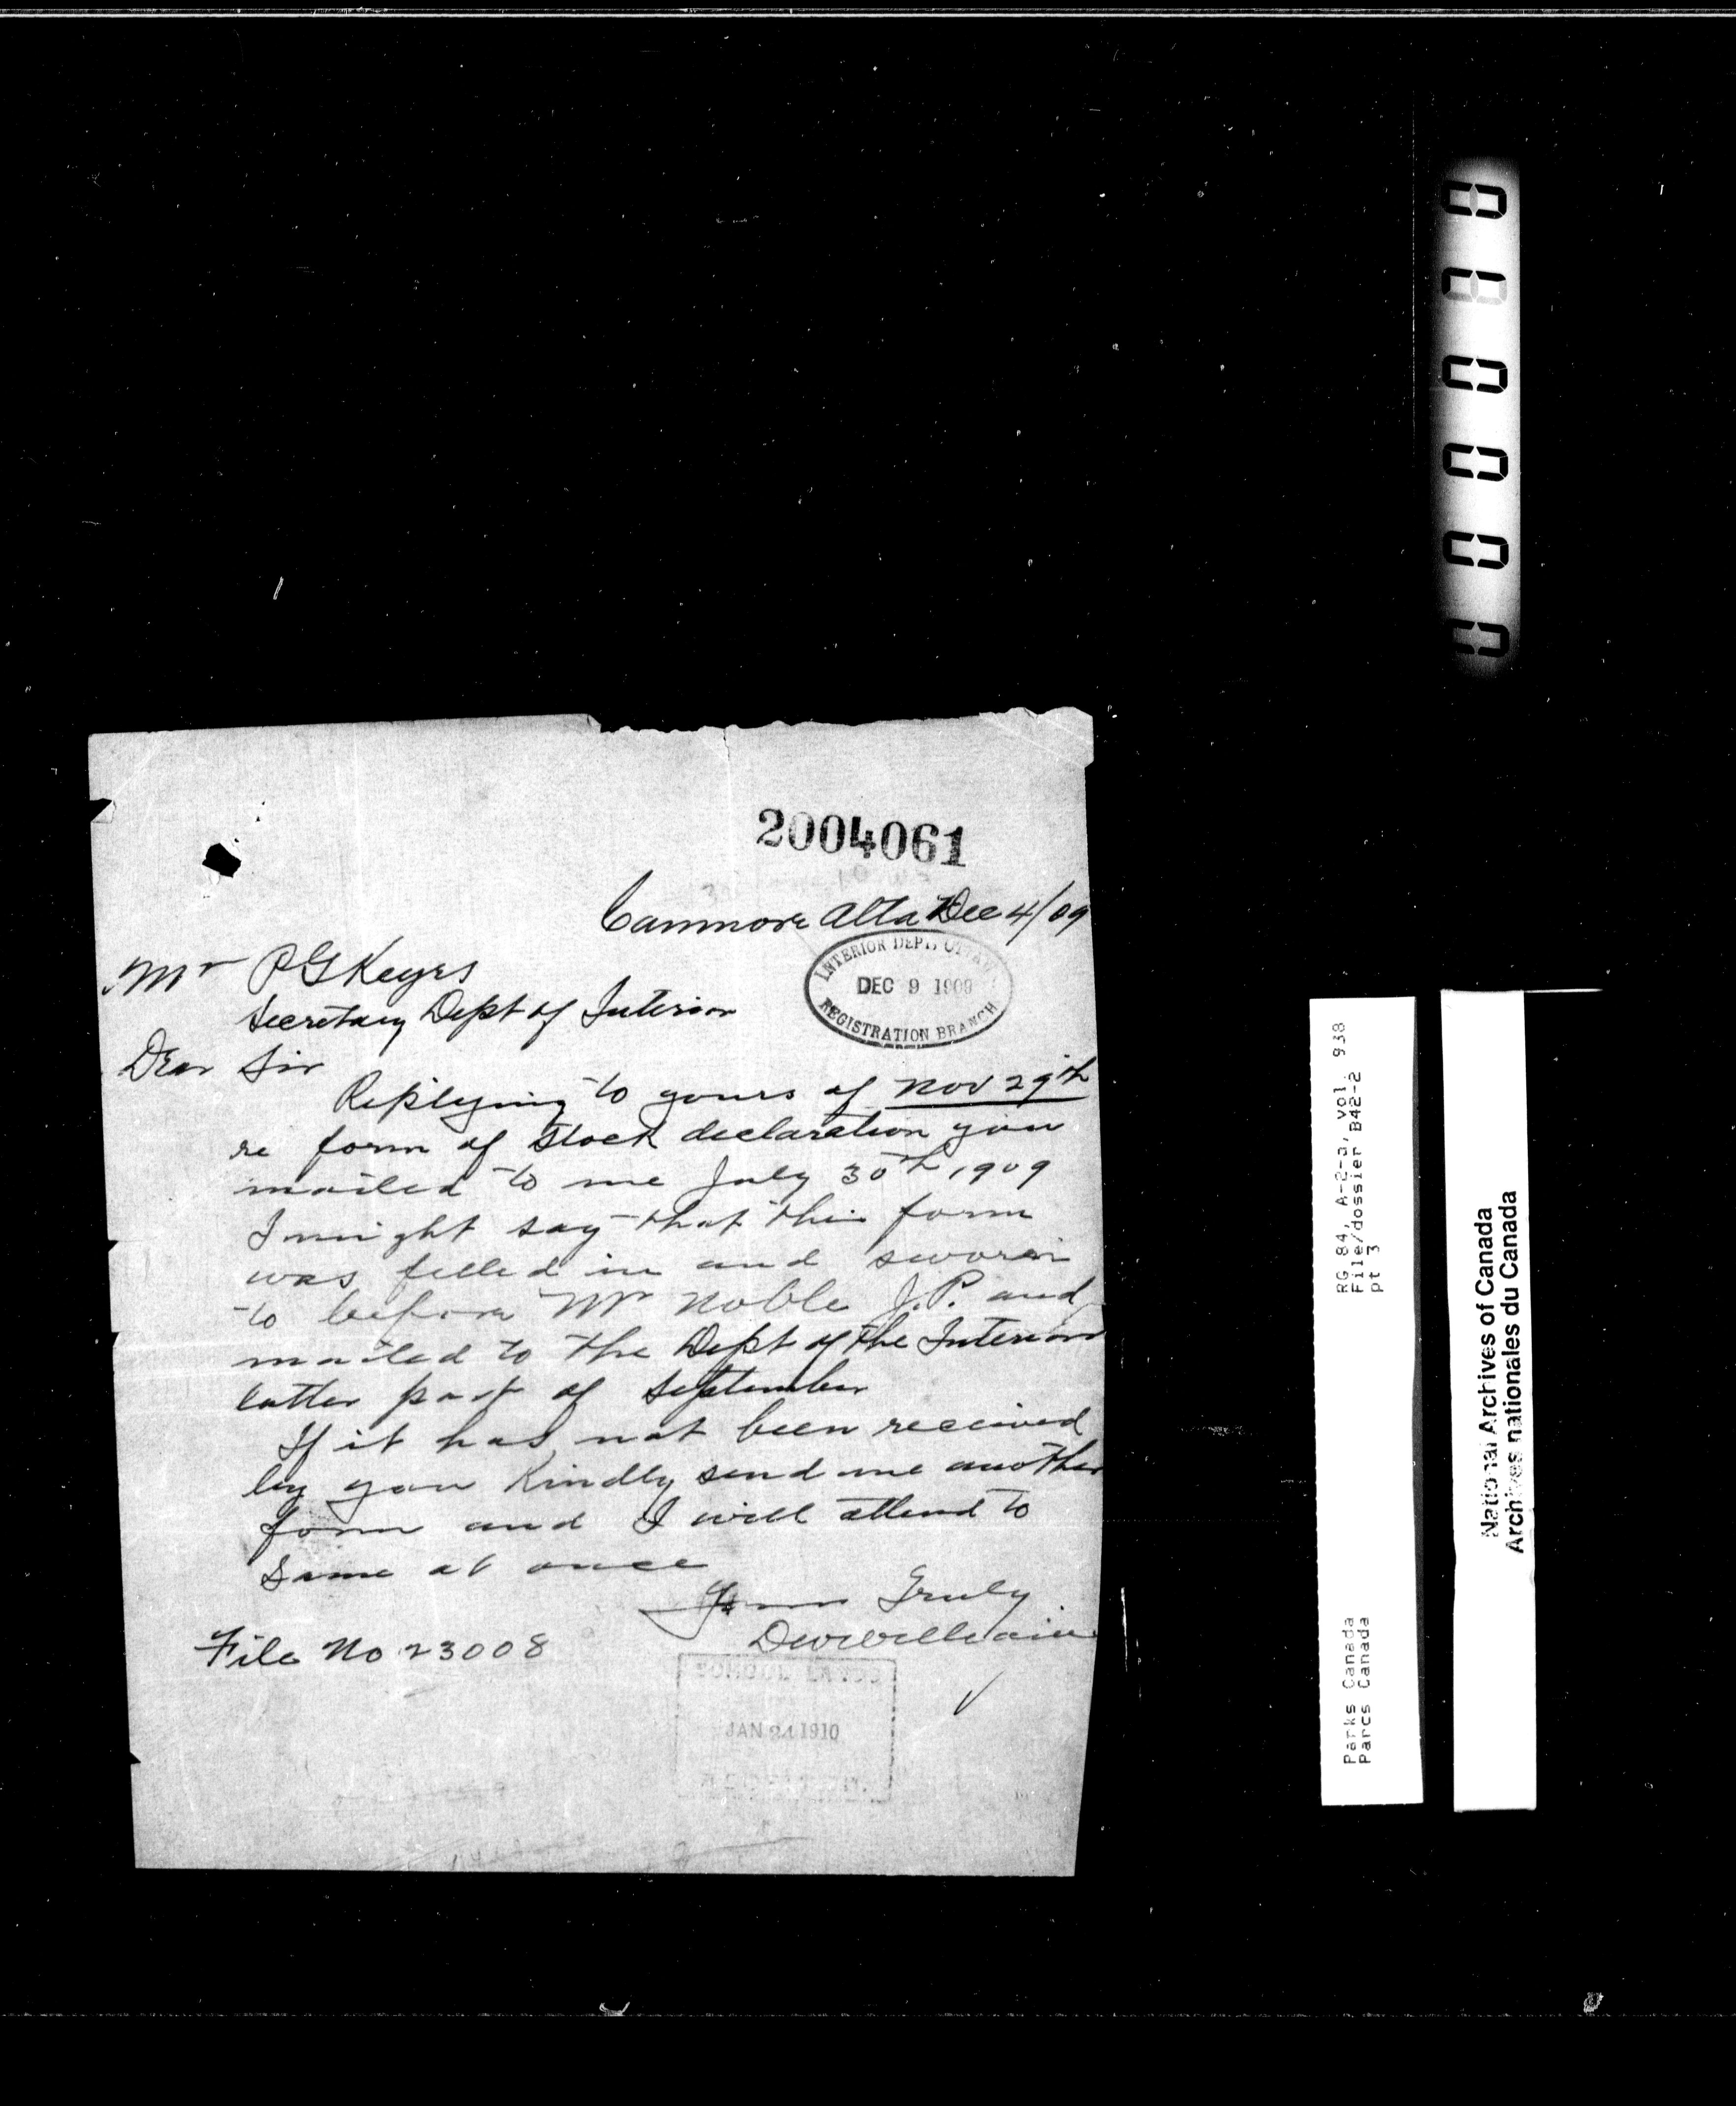 2004061
Canmore Alta Dec 4/09
INTERIOR DEPT. OTTAWA
DEC 9 1909
REGISTRATION BRANCH
Mr P G Keyes
Secretary Dept of Interior
Dear Sir
Replying to yours of Nov 29th
re form of stock declaration you
mailed to me July 30th 1909
I might say that this form
was filled in and sworn
to before Mr Noble J.P. and
mailed to the Dept of the Interior
latter part of September
If it has not been received
by you Kindly send me another
form and I will attend to
same at once
Yours Truly
File No 23008
SCHOOL LANDS
JAN 24 1910
RG 84, A-2-a, vol. 938
File/dossier B42-2
pt 3
Parks Canada
Parcs Canada
National Archives of Canada
Archives nationales du Canada